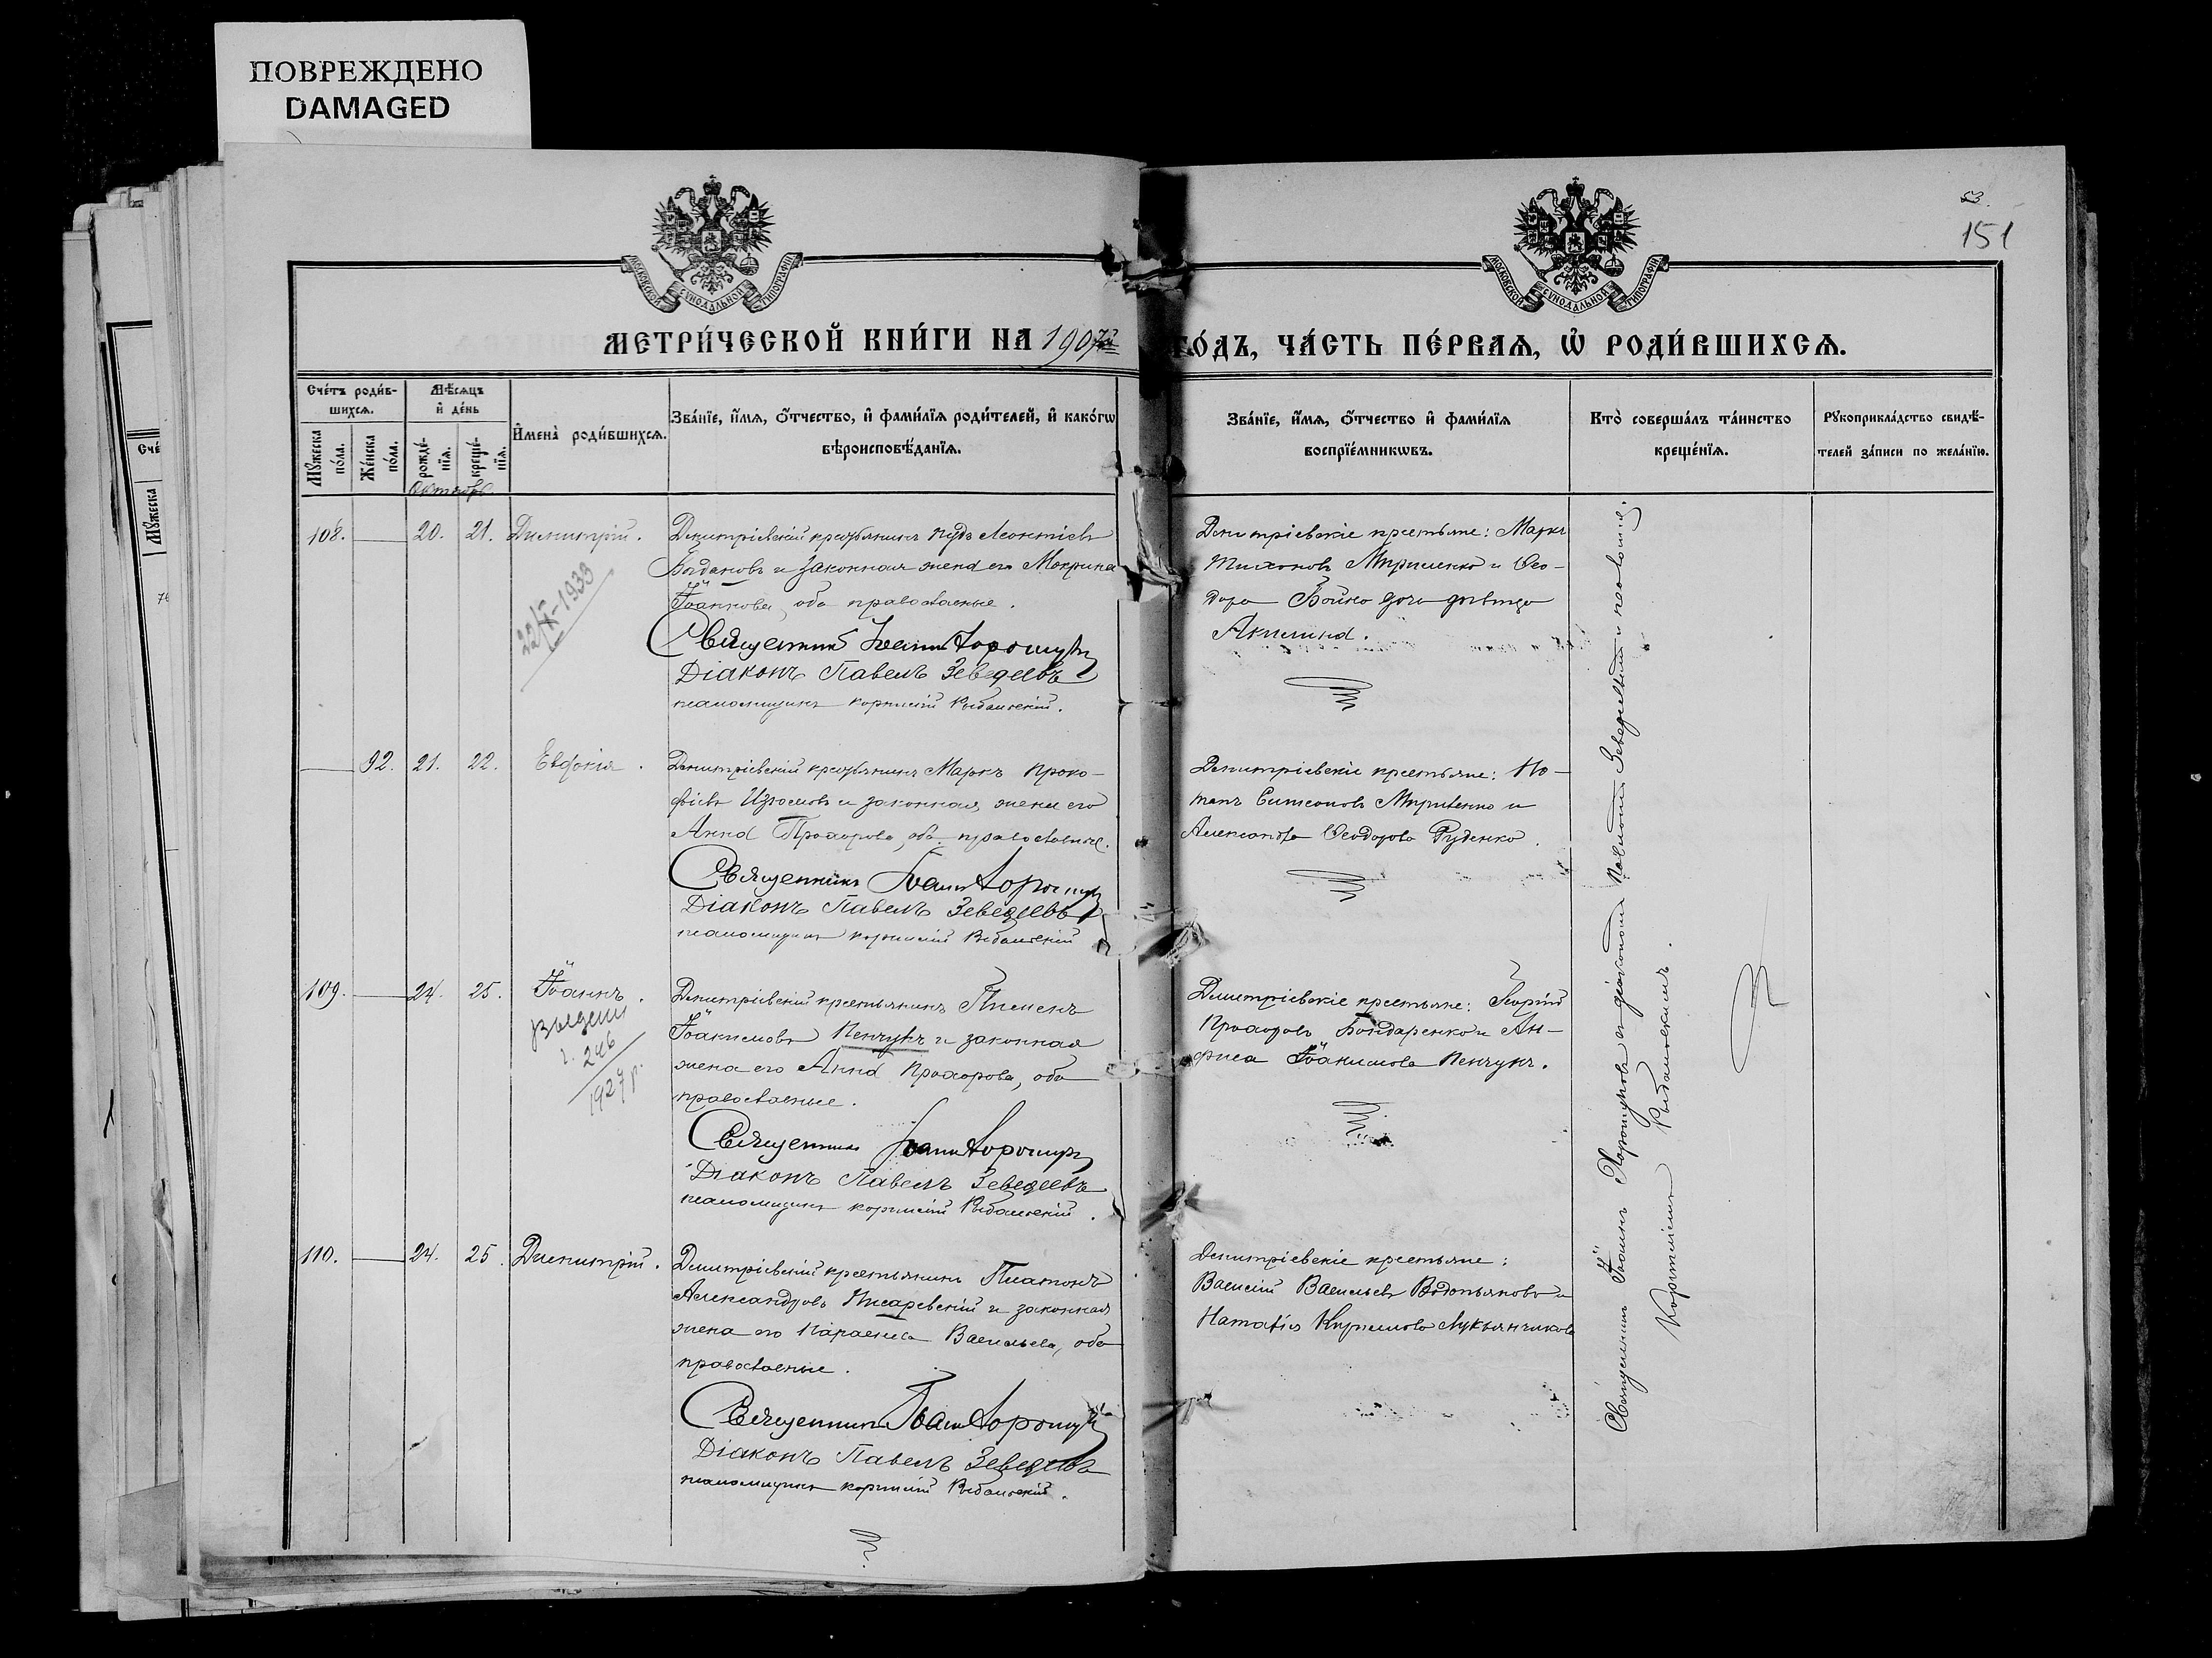 ПОВРЕЖДЕНО
DAMAGED
МОСКОВСКОЙ СѴНОДАЛЬНОЙ ТИПОГРАФІИ
МОСКОВСКОЙ СѴНОДАЛЬНОЙ ТИПОГРАФІИ
53.
151
МЕТРИ́ЧЕСКОЙ КНИ́ГИ НА 1907й ГО́ДЪ, ЧА́СТЬ ПЕ́РВАЯ, Ѡ҆ РОДИ́ВШИХСЯ.
Сче́тъ роди́в-
шихсѧ.
Мꙋ́жеска по́ла.
Же́нска по́ла.
Мѣ́сѧцъ
и҆ де́нь
рожде́-
нїѧ.
креще́-
нїѧ.
И҆мена̀ роди́вшихсѧ.
Зва́нїе, и҆́мѧ, ѻ҆́тчество, и҆ фами́лїѧ роди́телей, и҆ како́гѡ
вѣроисповѣ́данїѧ.
Зва́нїе, и҆́мѧ, ѻ҆́тчество и҆ фами́лїѧ
воспрїе́мникѡвъ.
Кто̀ соверша́лъ та́инство
креще́нїѧ.
Рꙋкоприкла́дство свидѣ́-
телей за́писи по жела́нїю.
Октябрь.
108. 20. 21. Димитрій.
Димитріевскій крестьянинъ Пудъ Леонтіевъ
Богдановъ и законная жена его Мокрина
Іоаннова, оба православные.
22/X-1933
Священникъ Іоаннъ Хорошунъ
Діаконъ Павелъ Зеведеевъ
псаломщикъ Корнилій Рыбальскій.
Димитріевскіе крестьяне: Маркъ
Тихоновъ Мириленко и Ѳео-
дора Бойко дочь дѣвица
Акилина.
92. 21. 22. Евдокія.
Димитріевскій крестьянинъ Маркъ Проко-
фіевъ Изюмовъ и законная жена его
Анна Прохорова, оба православные.
Священникъ Іоаннъ Хорошунъ
Діаконъ Павелъ Зеведеевъ
псаломщикъ Корнилій Рыбальскій
Димитріевскіе крестьяне: По-
тапъ Симеоновъ Мириленко и
Александра Ѳеодорова Руденко.
109. 24. 25. Іоаннъ.
246
1927 р.
Димитріевскій крестьянинъ Пименъ
Іоакимовъ Пенчукъ и законная
жена его Анна Прохорова, оба
православные.
Священникъ Іоаннъ Хорошунъ
Діаконъ Павелъ Зеведеевъ
псаломщикъ Корнилій Рыбальскій.
Димитріевскіе крестьяне: Георгій
Прохоровъ Бондаренко и Ан-
фиса Іоакимова Пенчукъ.
110. 24. 25. Димитрій.
Димитріевскій крестьянинъ Платонъ
Александровъ Писаревскій и законная
жена его Параскева Васильева, оба
православные.
Священникъ Іоаннъ Хорошунъ
Діаконъ Павелъ Зеведеевъ
псаломщикъ Корнилій Рыбальскій.
Димитріевскіе крестьяне:
Василій Васильевъ Водопьяновъ и
Наталія Кириллова Лукьянчикова
Священникъ Іоаннъ Хорошуновъ съ діакономъ Павломъ Зеведеевымъ и псаломщ.
Корниліемъ Рыбальскимъ.